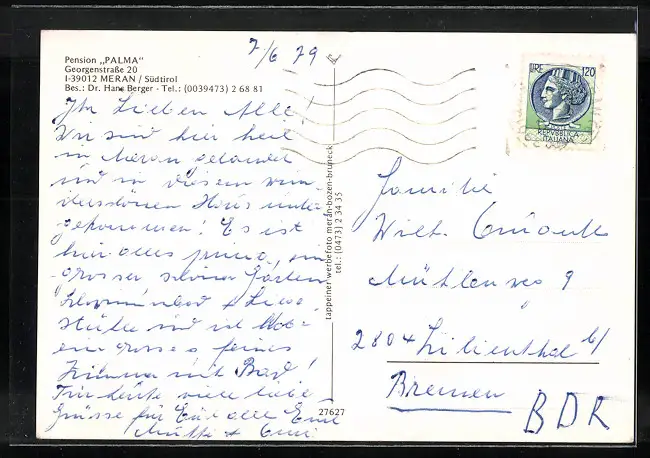 Pension „PALMA"
Georgenstraße 20
I-39012 MERAN / Südtirol
Bes.: Dr. Hans Berger - Tel.: (0039473) 2 68 81
7/6 79
Ihr Lieben Alle!
Wir sind hier heil
in Meran gelandet
und in diesem wun-
derschönen Haus unter-
gekommen! Es ist
hier alles prima, ein
grosser schöner Garten
Schwimmbad + Liege
stühle und ich habe
ein grosses feines
Zimmer mit Bad!
Für heute viele liebe
Grüsse für Euch alle Eure
Mutti + Omi
tappeiner werbefoto meran-bozen-bruneck
tel.: (0473) 2 34 35
27627
LIRE 120
REPVBBLICA
ITALIANA
Familie
Wilh.
Mühlenweg 9
2804 Lilienthal b/
Bremen
BDR